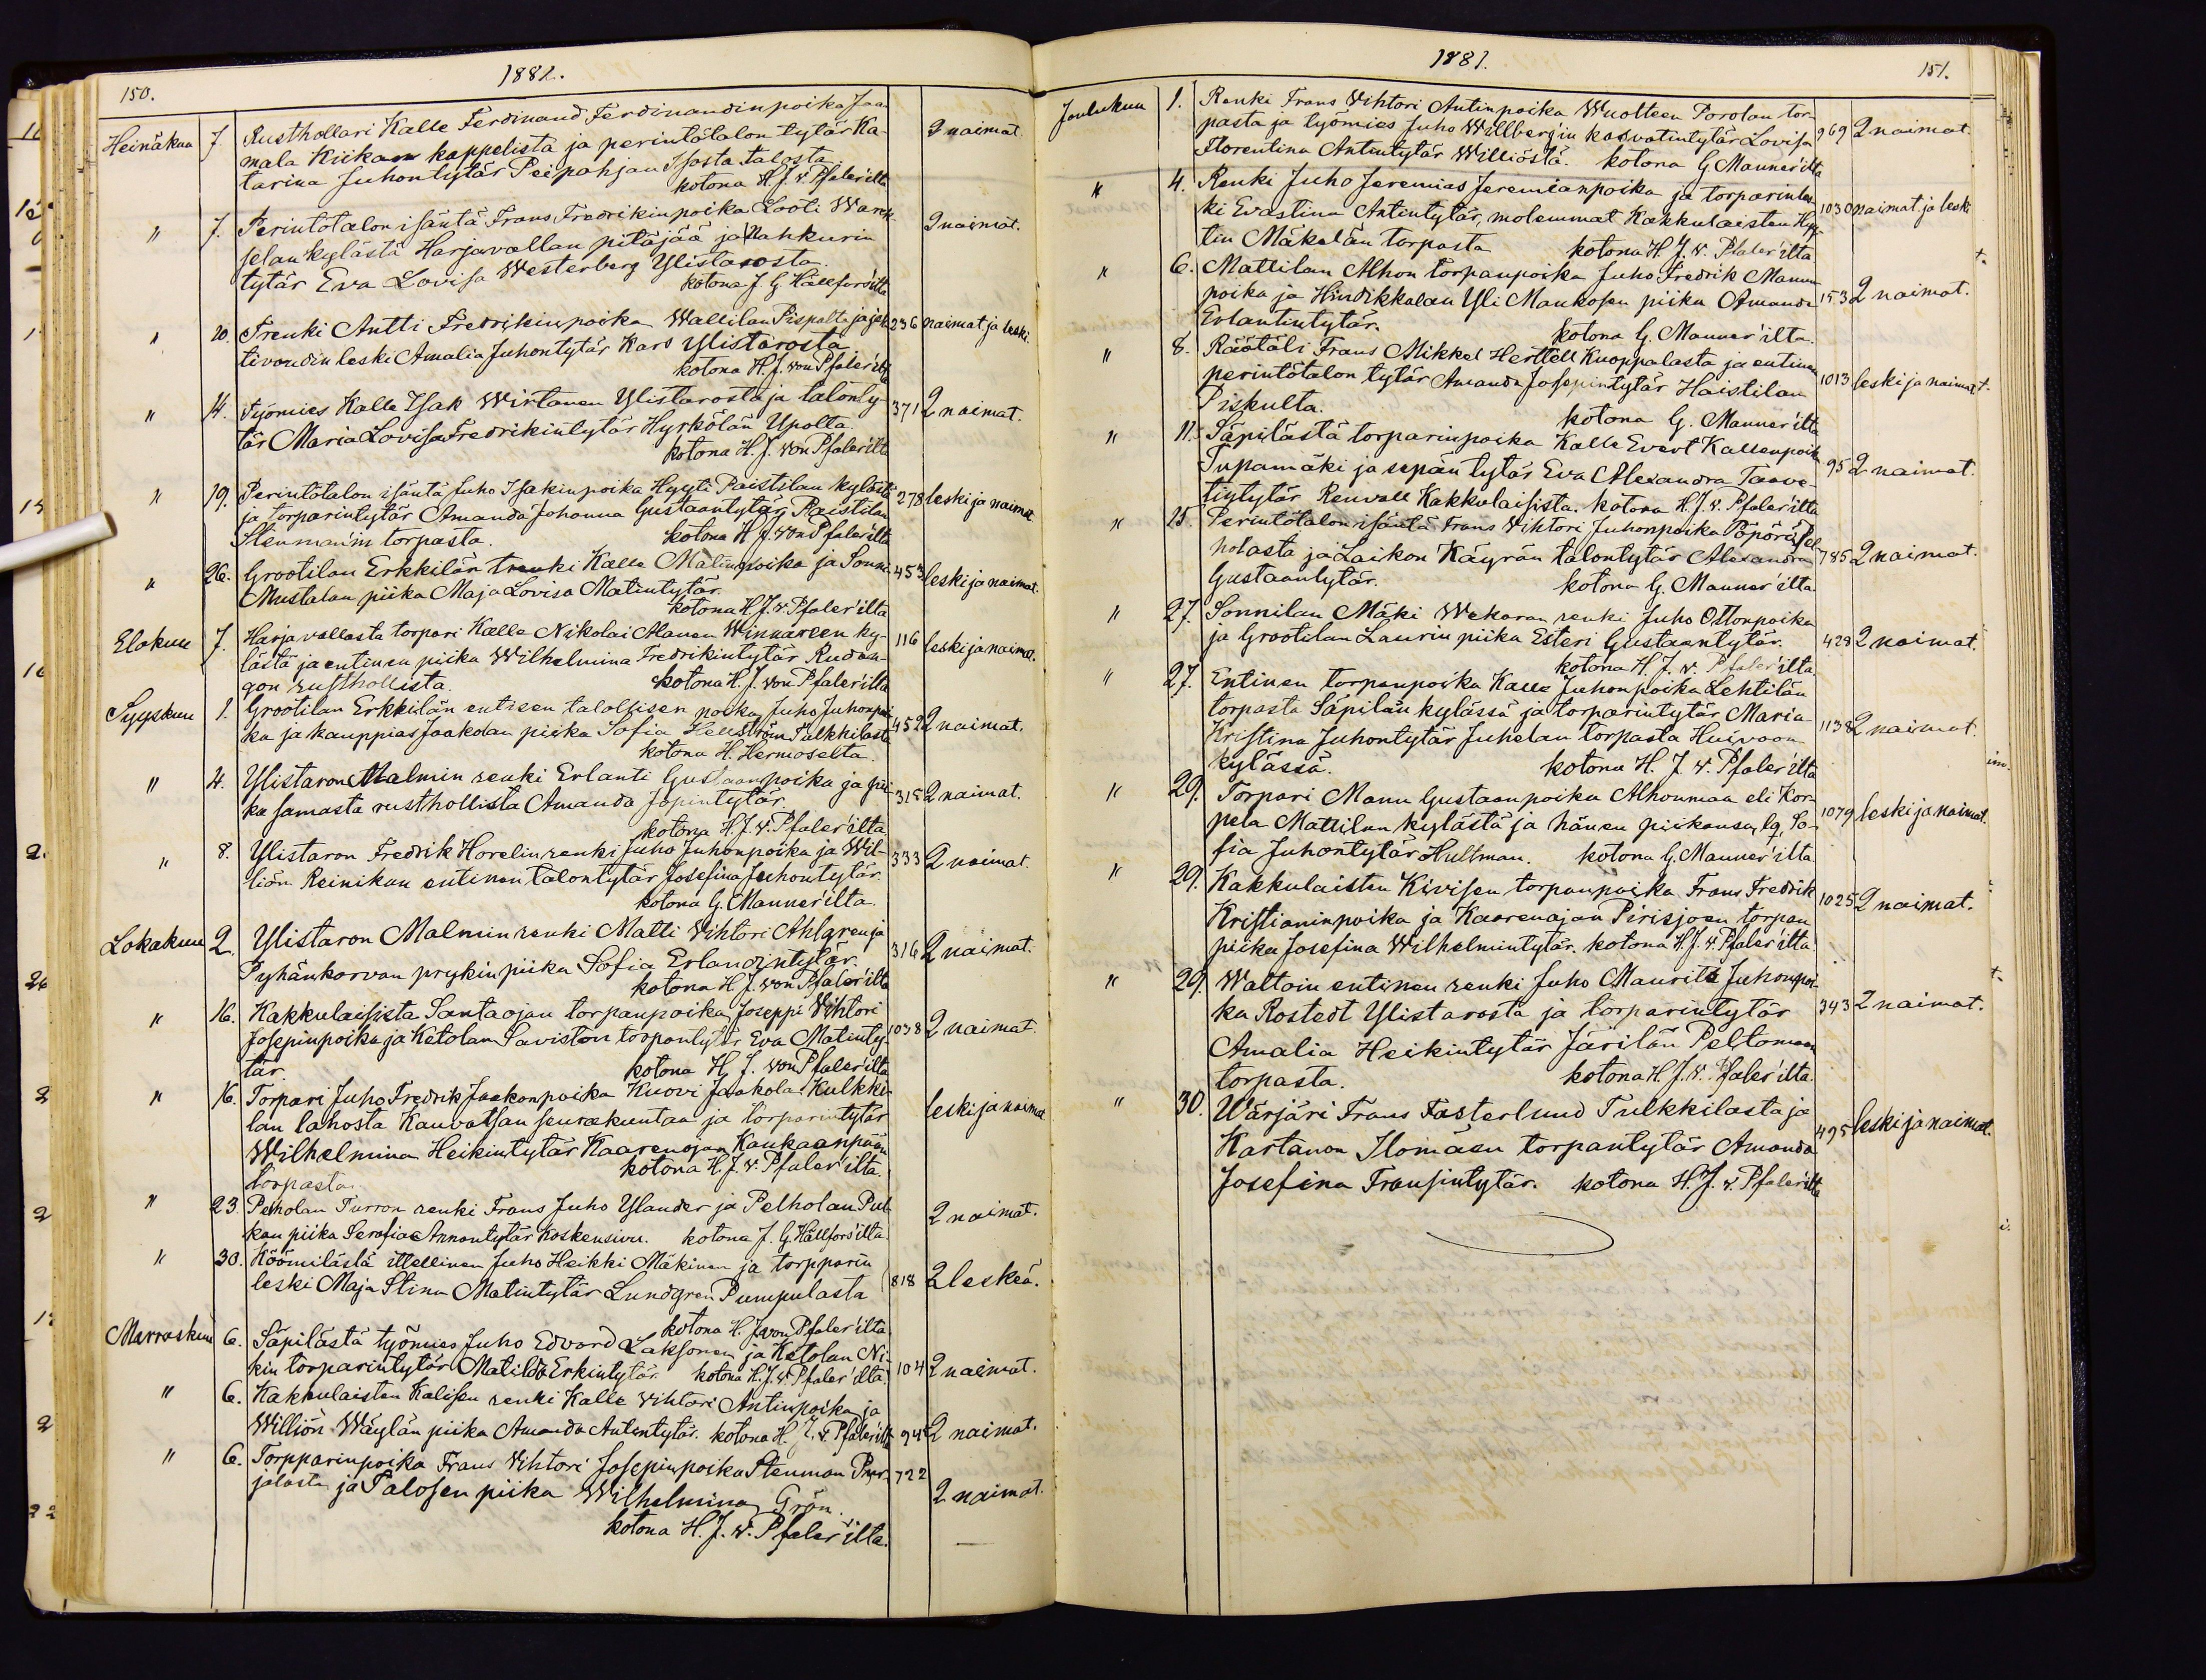 150.
1881.
Heinäkuu 7. Rusthollari Kalle Ferdinand Ferdinandinpoika Jaa-
mala Kiikasen kappelista ja perintötalon tytär Ka- 2 naimat.
tarina Juhontytär Peipohjan Isosta talosta.
kotona H. J. v. Pfaler'ilta
" 7. Perintötalon isäntä Frans Fredrikinpoika Looti
selan kylästä Harjavallan pitäjää ja Nahkurin 2 naimat.
tytär Eva Lovisa Westerberg Ylistarosta.
kotona J. G. Hällfors'ilta
" 10. Trenki Antti Fredrikinpoika Wallilan Pispalta ja 236 naimat. ja leski.
tivoudin leski Amalia Juhontytär Kars Ylistarosta
kotona H. J. von Pfaler'ilta
" 14. Työmies Kalle Isak Wirtanen Ylistarosta ja talonty- 371 2 naimat.
tär Maria Lovisa Fredrikintytär Hyrkölän Upolta.
kotona H. J. von Pfaler'ilta
" 19. Perintötalon isäntä Juho Isakinpoika Hyyti Paistilan kylästä 278 leski ja naimat.
ja torparintytär Amanda Johanna Gustaantytär Raistilan
Stenman'in torpasta. kotona H. J. von Pfaler'ilta
" 26. Grootilan Erkkilän trenki Kalle Matinpoika ja Sonni- 453 leski ja naimat.
Mustalan piika Maja Lovisa Matintytär.
kotona H. J. v. Pfaler'ilta
Elokuu 7. Harjavallasta torpari Kalle Nikolai Alanen Winnareen ky- 116 leski ja naimat.
lästä ja entinen piika Wilhelmina Fredrikintytär Rudan-
gon rusthollista. kotona H. J. von Pfaler'ilta
Syyskuu 1. Grootilan Erkkilän entisen talollisen poika Juho Juhonpoi-
ka ja kauppias Jaakolan piika Sofia Hellström Tulkkilasta 452 2 naimat.
kotona H. Hermoselta.
" 4. Ylistaron Malmin renki Erlanti Gustaanpoika ja pii- 315 2 naimat.
ka samasta rusthollista Amanda Japintytär.
kotona H. J. v. Pfaler'ilta
" 8. Ylistaron Fredrik Horelin renki Juho Juhonpoika ja Wil- 333 2 naimat.
liön Reinikan entinen talontytär Josefina Juhontytär.
kotona G. Manner'ilta.
Lokakuu 2. Ylistaron Malmin renki Matti Vihtori Ahlgren ja 316 2 naimat.
Pyhänkorvan prykin piika Sofia Erlandintytär.
kotona H. J. von Pfaler'ilta
" 16. Kakkulaisista Santaojan torpanpoika Joseppi Vihtori
Josepinpoika ja Ketolan Saviston torpantytär Eva Matinty- 1038 2 naimat.
tär. kotona H. J. von Pfaler'ilta
" 16. Torpari Juho Fredrik Jaakonpoika Kuovi Jaakola Kulkki-
lan lahosta Kauvatsan seurakuntaa ja torparintytär leski ja naimat.
Wilhelmina Heikintytär Kaarenojan Kaukaanpään
torpasta. kotona H. J. v. Pfaler'ilta.
" 23. Peiholan Turron renki Frans Juho Ylander ja Pelholan Pul- 2 naimat.
kan piika Serafia Annantytär Koskensivu. kotona J. G. Hällfors'ilta.
" 30. Köömilästä itsellinen Juho Heikki Mäkinen ja torpparin
leski Maja Stina Matintytär Lundgren Pumpulasta 818 2 leskeä.
kotona H. J. von Pfaler'ilta.
Marraskuu 6. Säpilästä työmies Juho Edvard Laksonen ja Ketolan Ni-
kin torparintytär Matilda Erkintytär. kotona H. J. v. Pfaler'ilta. 104 2 naimat.
" 6. Kakkulaisten Kalisen renki Kalle Vihtori Antinpoika ja
Williön Wäylän piika Amanda Antintytär. kotona H. J. v. Pfaler'ilta 945 2 naimat.
" 6. Torpparinpoika Frans Vihtori Josepinpoika Stenman 722
jolasta ja Talosen piika Wilhelmina Grön. 2 naimat.
kotona H. J. v. Pfaler'ilta.
1881.
151.
Joulukuu 1. Renki Frans Vihtori Antinpoika Wuolteen Porolan tor-
pasta ja työmies Juho Willberg'in kasvatintytär Lovisa 969 2 naimat.
Florentina Antintytär Williöstä. kotona G. Manner'ilta
" 4. Renki Juho Jeremias Jeremianpoika ja torparinles- 1030 naimat. ja leski
ki Evastina Antintytär, molemmat Kakkulaisten Hyy-
tin Mäkelän torpasta kotona H. J. v. Pfaler'ilta
" 6. Mattilan Alhon torpanpoika Juho Fredrik Manun
poika ja Hindikkalan Yli Mankosen piika Amanda 153 2 naimat.
Erlantintytär. kotona G. Manner'ilta.
" 8. Räätäli Frans Mikkel Herttell Kuoppalasta ja entinen
perintötalon tytär Amanda Josepintytär Haistilan 1013 leski ja naimat.
Piskulta. kotona G. Manner'ilta
" 11. Säpilästä torparinpoika Kalle Evert Kallenpoika
Tupamäki ja sepän tytär Eva Alexandra Taave- 95 2 naimat.
tintytär Renvall Kakkulaisista. kotona H. J. v. Pfaler'ilta
" 25. Perintötalon isäntä Frans Vihtori Juhonpoika Pöpörä Pel-
holasta ja Laikon Käyrän talontytär Alexandra 785 2 naimat.
Gustaantytär. kotona G. Manner'ilta.
" 27. Sonnilan Mäki Wekaran renki Juho Ottonpoika
ja Grootilan Laurin piika Esteri Gustaantytär. 428 2 naimat.
kotona H. J. v. Pfaler'ilta
" 27. Entinen torpanpoika Kalle Juhonpoika Lehtilän
torpasta Säpilän kylässä ja torparintytär Maria 1138 2 naimat.
Kristina Juhontytär Juhelan torpasta Huivoon
kylässä. kotona H. J. v. Pfaler'ilta
" 29. Torpari Manu Gustaanpoika Alhonmaa eli Kor- 1079 leski ja naimat.
pela Mattilan kylästä ja hänen piikansa, lq. So-
fia Juhontytär Hultman. kotona G. Manner'ilta
" 29. Kakkulaisten Kivisen torpanpoika Frans Fredrik
Kristianinpoika ja Kaarenojan Pirisjoen torpan 1025 2 naimat.
piika Josefina Wilhelmintytär. kotona H. J. v. Pfaler'ilta
" 29. Waltoin entinen renki Juho Maurits Juhonpoi-
ka Rostedt Ylistarosta ja torparintytär 343 2 naimat.
Amalia Heikintytär Järilän Peltomaan
torpasta. kotona H. J. v. Pfaler'ilta.
" 30. Wärjäri Frans Fasterlund Tulkkilasta ja
Kartanon Ilomäen torpantytär Amanda 495 leski ja naimat.
Josefina Fransintytär. kotona H. J. v. Pfaler'ilta